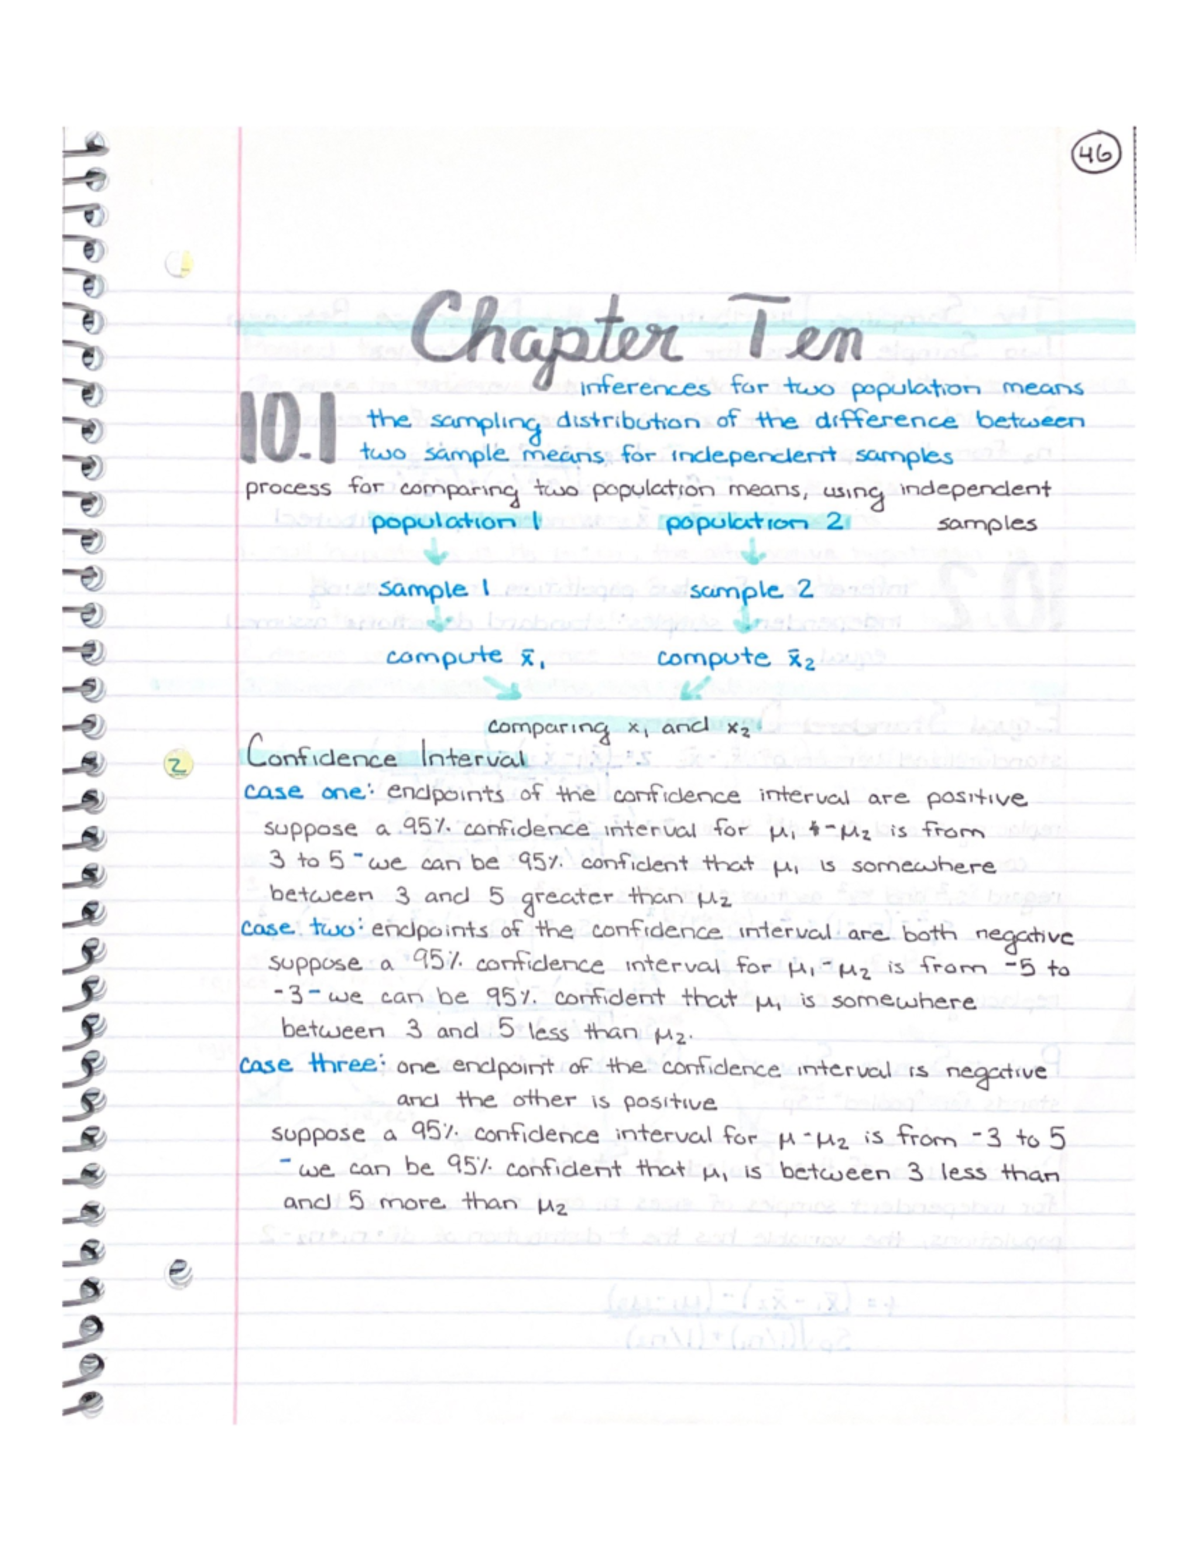 46
Chapter Ten
inferences for two population means
10.1 the sampling distribution of the difference between
two sample means for independent samples
process for comparing two population means, using independent
population 1 population 2 samples
sample 1 sample 2
compute x̄₁ compute x̄₂
comparing x₁ and x₂
2 Confidence Interval
case one: endpoints of the confidence interval are positive
suppose a 95% confidence interval for μ₁ - μ₂ is from
3 to 5 - we can be 95% confident that μ₁ is somewhere
between 3 and 5 greater than μ₂
case two: endpoints of the confidence interval are both negative
suppose a 95% confidence interval for μ₁ - μ₂ is from -5 to
-3 - we can be 95% confident that μ₁ is somewhere
between 3 and 5 less than μ₂.
case three: one endpoint of the confidence interval is negative
and the other is positive
suppose a 95% confidence interval for μ - μ₂ is from -3 to 5
- we can be 95% confident that μ₁ is between 3 less than
and 5 more than μ₂